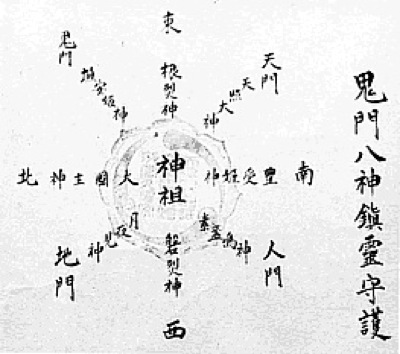 鬼門八神鎮靈守護
東
根裂神
天門
天照大神
南
豊受姫神
人門
素盞嗚神
西
磐裂神
地門
月夜見神
北
大國主神
鬼門
埴安姫神
神祖